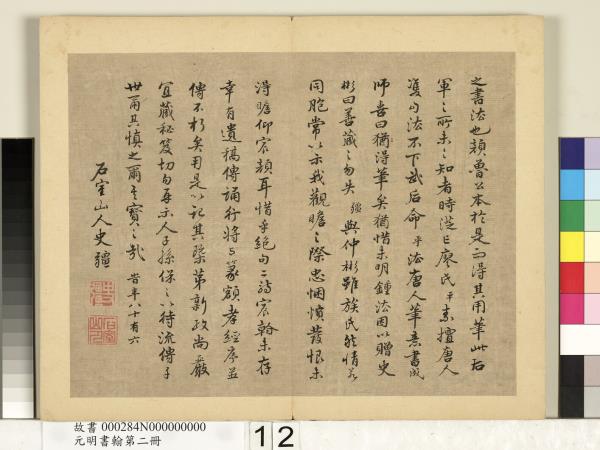 之書法也顏魯公本於是而得其用筆此右
軍之所未之知者時從巨庚民平素擅唐人
筆句法不下武后命平法唐人筆意書成
師喜曰猶得筆矣猶惜未明鍾法因以贈史
彬曰善藏之勿失 彊與仲彬雖族民能情若
同胞常以示我觀瞻之際忠悃憤發恨未
得瞻仰宸顏耳惜乎絕句二詩宸翰未存
幸有遺稿傳誦行將与篆額孝經序並
傳不朽矣用是以記其槩第新政尚嚴
宜藏秘笈切勿再示人子孫保之以待流傳于
世爾其慎之爾其寶之哉 岩年八十有六
石室山人史彊
故書 000284N000000000
元明書翰第二冊
12